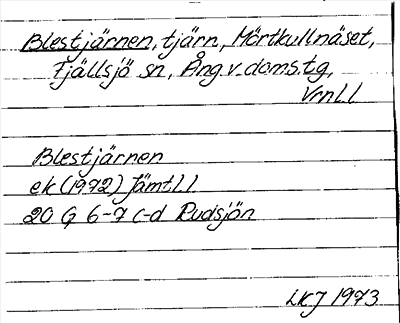 Blestjärnen, tjärn, Mörtkullnäset,
Fjällsjö sn, Ång. v. doms.tg,
Vrnl l
Blestjärnen
ek (1972) Jämtl l
20 G 6-7 c-d Rudsjön
LKJ 1973